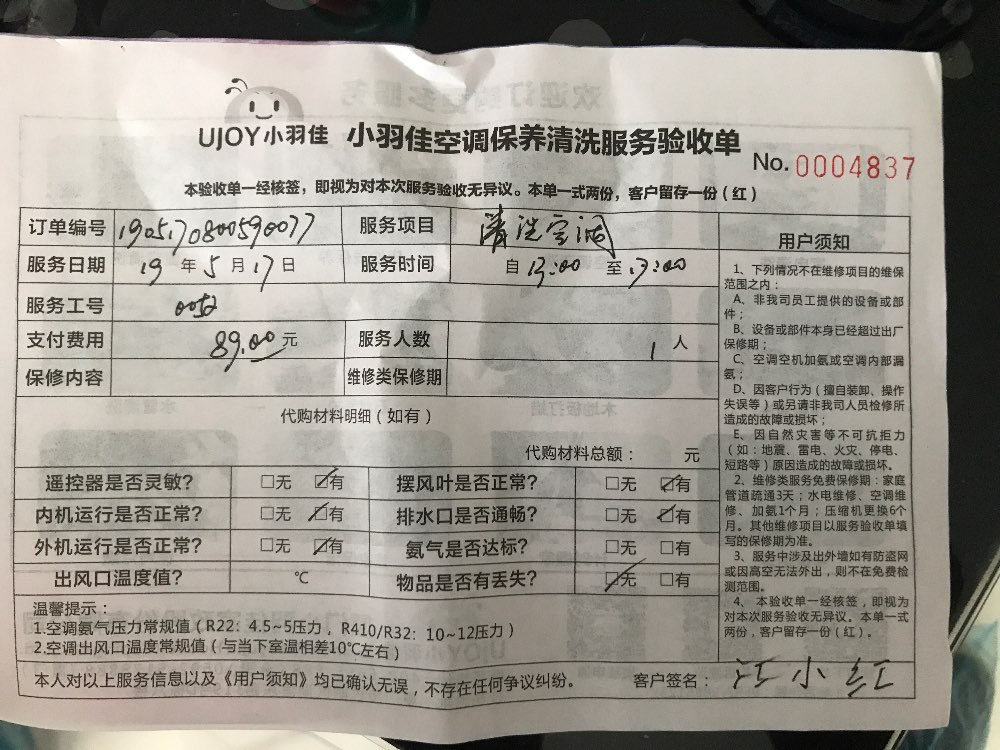 UJOY小羽佳 小羽佳空调保养清洗服务验收单
No. 0004837
本验收单一经核签，即视为对本次服务验收无异议。本单一式两份，客户留存一份（红）
订单编号 1905170800590077 服务项目 清洗空调
服务日期 19 年 5 月 17 日 服务时间 自 13:00 至 17:00
服务工号 0052
支付费用 89.00 元 服务人数 1 人
保修内容 维修类保修期
代购材料明细（如有）
代购材料总额： 元
遥控器是否灵敏？ □无 ☑有 摆风叶是否正常？ □无 ☑有
内机运行是否正常？ □无 ☑有 排水口是否通畅？ □无 ☑有
外机运行是否正常？ □无 ☑有 氨气是否达标？ □无 □有
出风口温度值？ ℃ 物品是否有丢失？ ☑无 □有
温馨提示：
1.空调氨气压力常规值（R22：4.5~5压力，R410/R32：10~12压力）
2.空调出风口温度常规值（与当下室温相差10℃左右）
本人对以上服务信息以及《用户须知》均已确认无误，不存在任何争议纠纷。 客户签名： 江小红
用户须知
1、下列情况不在维修项目的维保
范围之内：
A、非我司员工提供的设备或部
件；
B、设备或部件本身已经超过出厂
保修期；
C、空调空机加氨或空调内部漏
氨；
D、因客户行为（擅自装卸、操作
失误等）或另请非我司人员检修所
造成的故障或损坏；
E、因自然灾害等不可抗拒力
（如：地震、雷电、火灾、停电、
短路等）原因造成的故障或损坏。
2、维修类服务免费保修期：家庭
管道疏通3天；水电维修、空调维
修、加氨1个月；压缩机更换6个
月。其他维修项目以服务验收单填
写的保修期为准。
3、服务中涉及出外墙如有防盗网
或因高空无法外出，则不在免费检
测范围。
4、本验收单一经核签，即视为
对本次服务验收无异议。本单一式
两份，客户留存一份（红）。